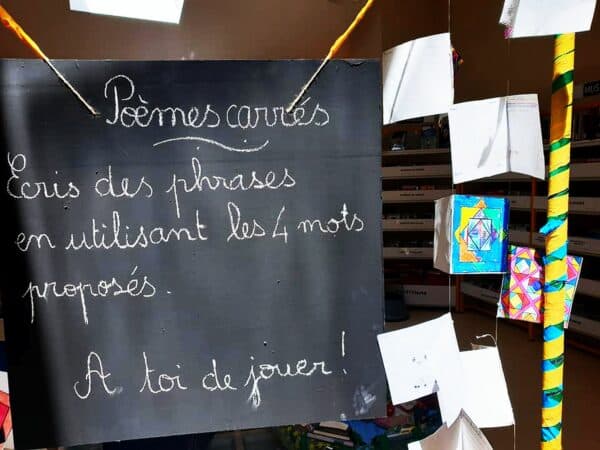 Poèmes carrés
Écris des phrases
en utilisant les 4 mots
proposés.
A toi de jouer !